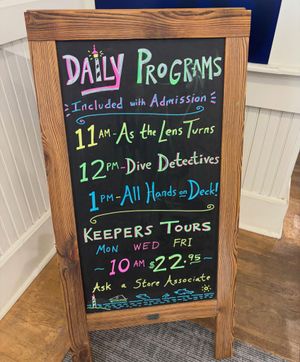 DAILY PROGRAMS
Included with Admission
11AM-As the Lens Turns
12PM-Dive Detectives
1PM-All Hands on Deck!
KEEPERS TOURS
MON WED FRI
~10AM $22.95~
Ask a Store Associate